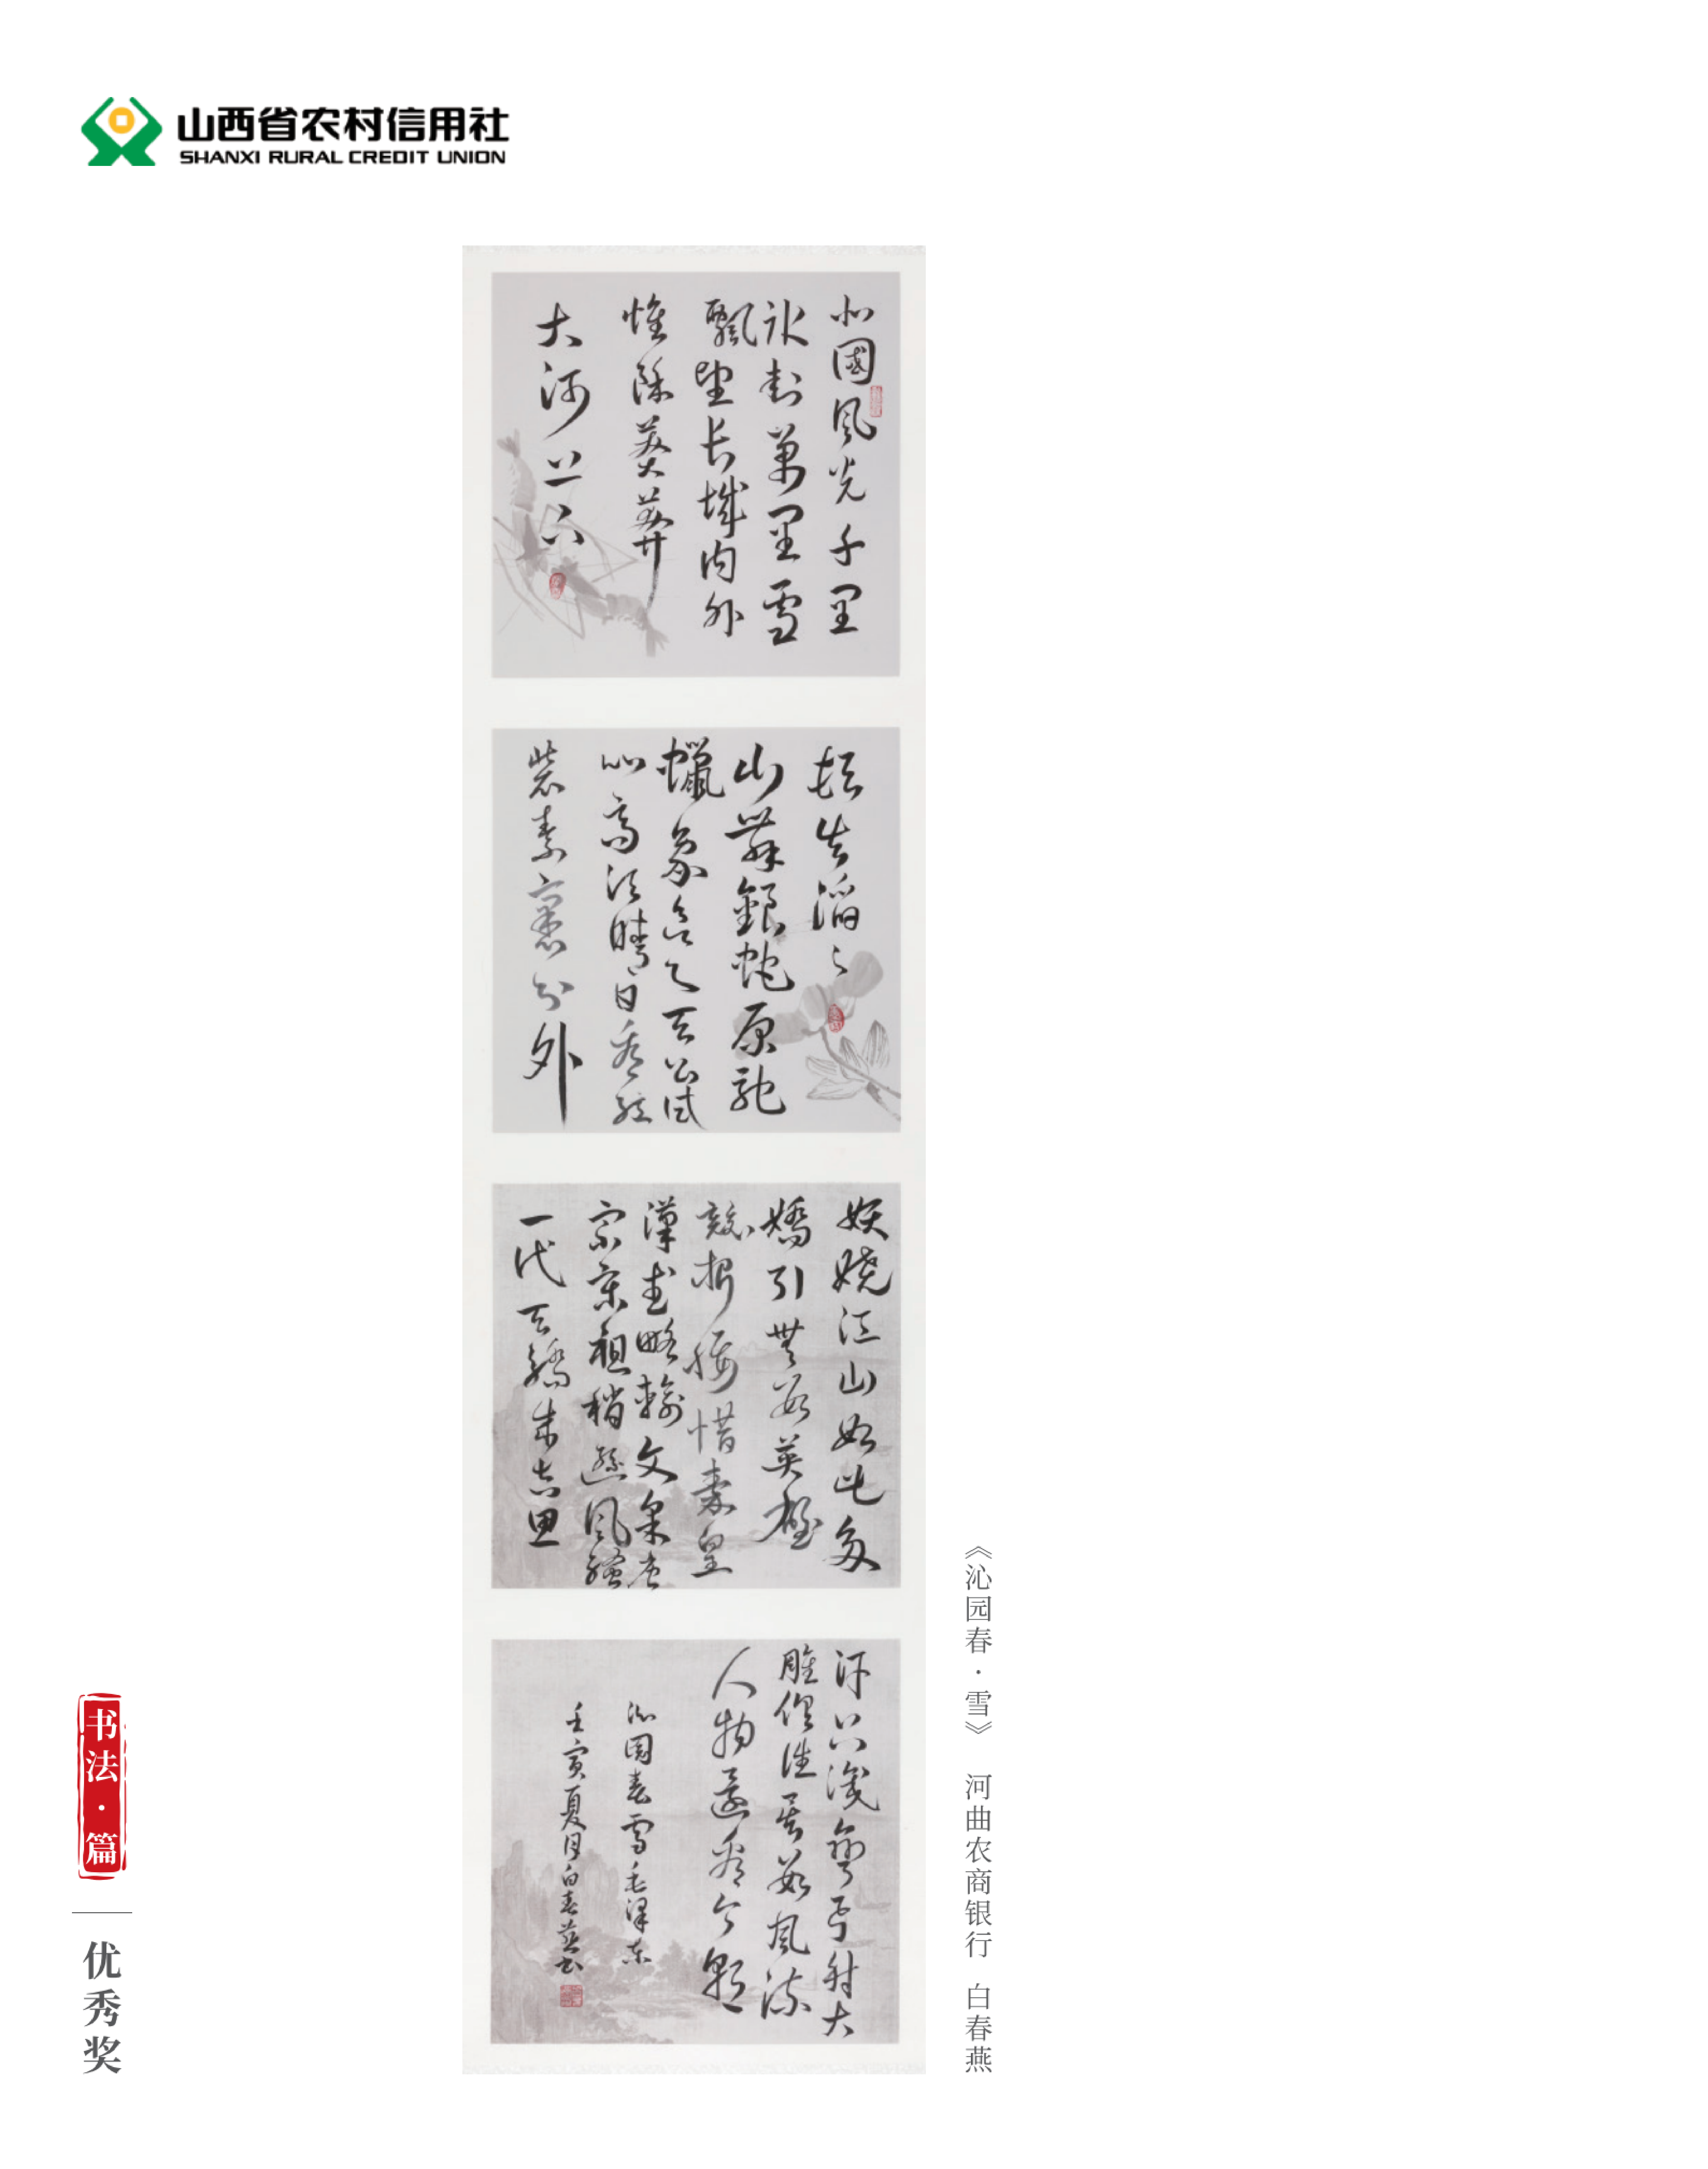 山西省农村信用社
SHANXI RURAL CREDIT UNION
北國風光千里
冰封萬里雪
飄望长城内外
惟餘莽莽
大河上下
頓失滔〻
山舞銀蛇原馳
蠟象欲与天公試
比高須晴日看紅
裝素裹分外
妖嬈江山如此多
嬌引無數英雄
競折腰惜秦皇
漢武略輸文采唐
宗宋祖稍遜風騷
一代天驕成吉思
汗只識彎弓射大
雕俱往矣數風流
人物還看今朝
沁園春雪毛澤东
壬寅夏月白春燕书
《沁园春·雪》 河曲农商银行 白春燕
书法·篇
优秀奖